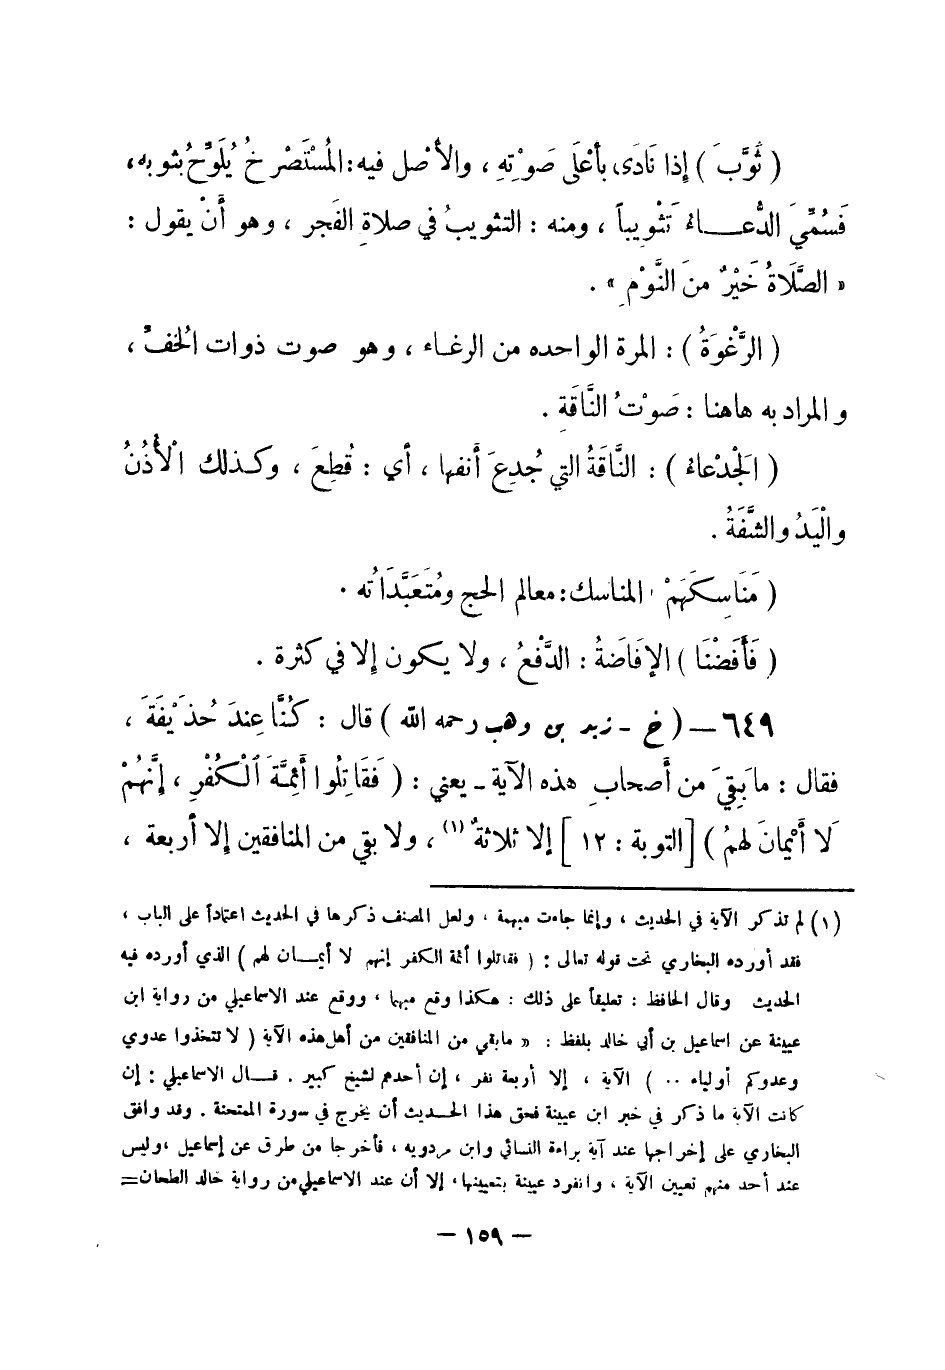 ( ثَوَّبَ ) إذا نَادَى بأعْلَى صَوْتِهِ ، والأصْل فيه : المُسْتَصْرِخُ يُلَوِّحُ بثوبه ،
فَسُمِّيَ الدُّعــاءُ تَثْوِيباً ، ومنه : التثويبُ في صلاةِ الفَجرِ ، وهو أنْ يقول :
« الصَّلَاةُ خَيْرٌ منَ النَّوْمِ » .
( الرَّغْوَةُ ) : المرة الواحده من الرغـاء ، وهو صوت ذوات الخفِّ ،
والمراد به هاهنا : صَوْتُ النَّاقَةِ .
( الجَدْعاءُ ) : النَّاقَةُ التي جُدِعَ أنفها ، أي : قُطِعَ ، وكـذلك الْأُذُنُ
والْيَدُ والشَّفَةُ .
( مَنَاسِكَهَمْ ' المناسك : معالم الحج ومُتَعَبَّدَاتُه .
( فَأَفَضْنَا ) الإفَاضَةُ : الدَّفْعُ ، ولا يكون إلا في كثرة .
٦٤٩ – ( خ - زيد بن وهب رحمه الله ) قال : كُنَّا عِندَ حُذَيْفَةَ ،
فقال : مابَقِيَ من أصحابِ هذه الآية - يعني : ( فَقَاتِلُوا أَئِمَّةَ الْكُفْرِ ، إنَّهُمْ
لَا أَيْمَانَ لهمْ ) [ التوبة : ١٢ ] إلا ثلاثةٌ (١) ، ولا بقي من المنافقين إلا أربعة ،
(١) لم تذكر الآية في الحديث ، وإنما جاءت مبهمة ، ولعل المصنف ذكرها في الحديث اعتماداً على الباب ،
فقد أورده البخاري تحت قوله تعالى : ( فقاتلوا أئمة الكفر إنهم لا أيمـان لهم ) الذي أورده فيه
الحديث وقال الحافظ : تعليقاً على ذلك : هكذا وقع مبهما ، ووقع عند الاسماعيلي من رواية ابن
عيينة عن اسماعيل بن أبي خالد بلفظ : « مابقي من المنافقين من أهل هذه الآية ( لا تتخذوا عدوي
وعدوكم أولياء .. ) الآية ، إلا أربعة نفر ، إن أحدهم لشيخ كبير . قـال الاسماعيلي : إن
كانت الآية ما ذكر في خبر ابن عيينة فحق هذا الحـديث أن يخرج في سورة الممتحنة . وقد وافق
البخاري على إخراجها عند آية براءة النسائي وابن مردويه ، فأخرجا من طرق عن إسماعيل ، وليس
عند أحد منهم تعيين الآية ، وانفرد عيينة بتعيينها ، إلا أن عند الاسماعيلي من رواية خالد الطحان =
– ١٥٩ –